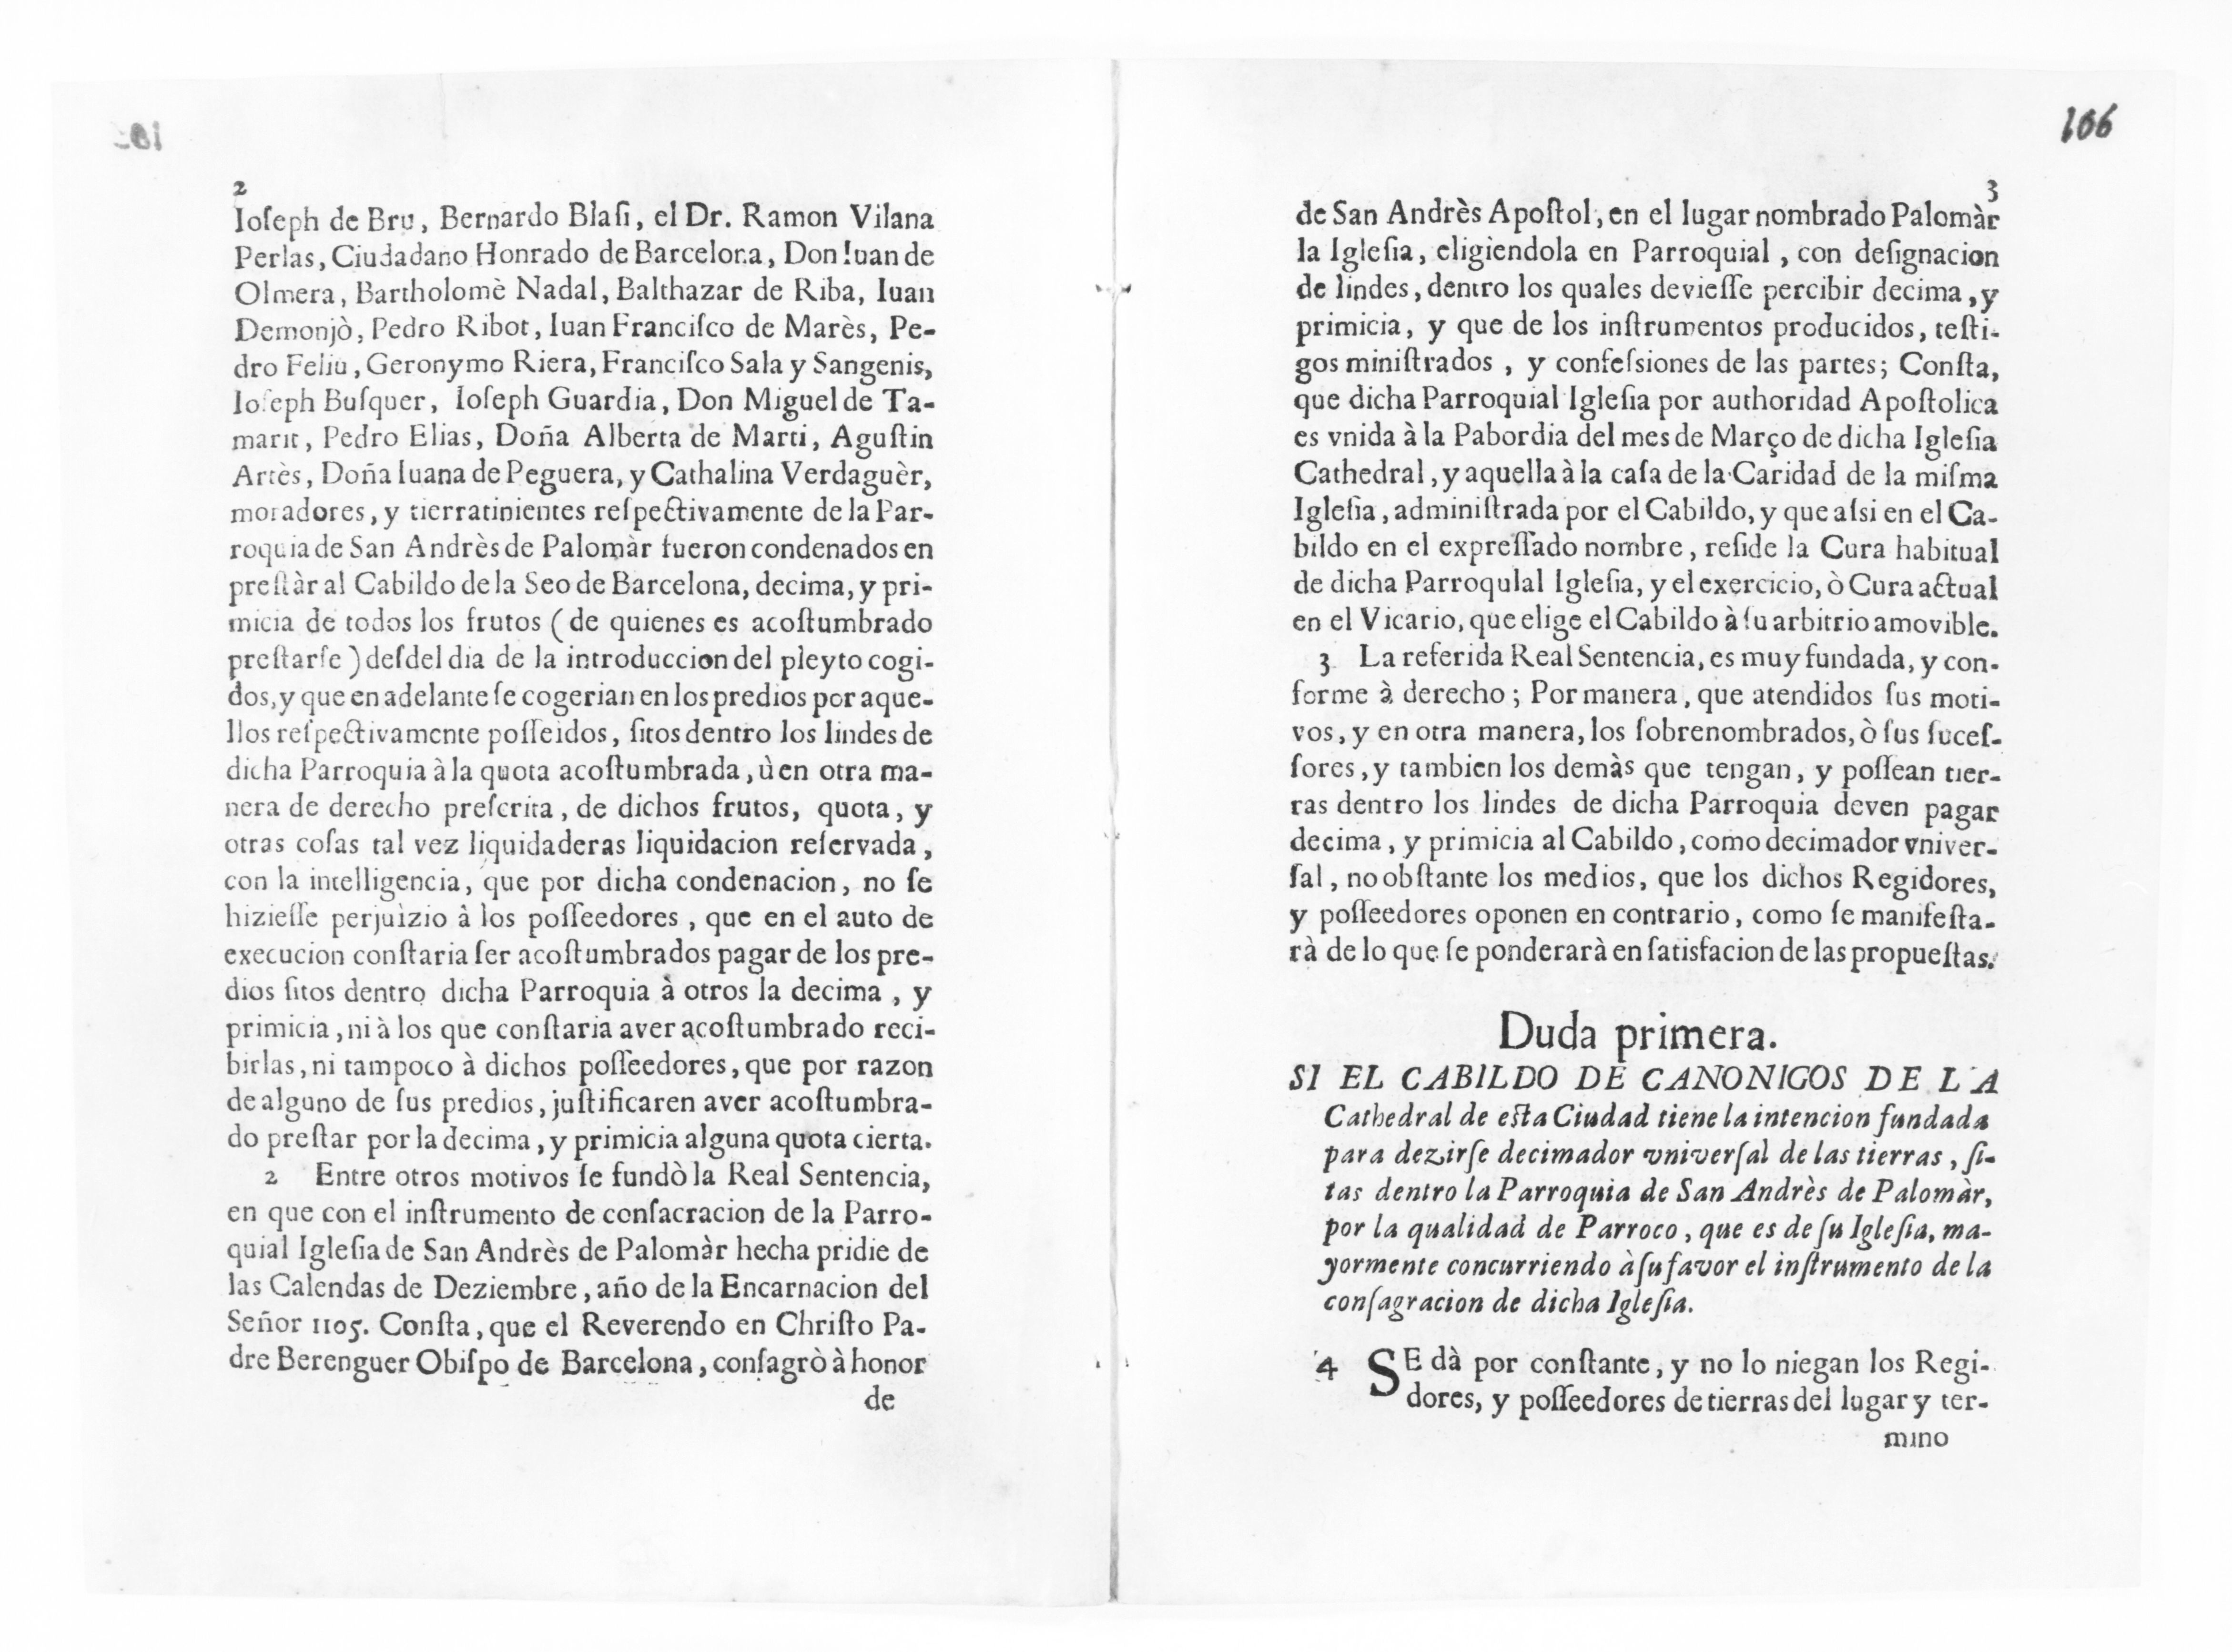 2
Ioſeph de Bru, Bernardo Blaſi, el Dr. Ramon Vilana
Perlas, Ciudadano Honrado de Barcelona, Don Iuan de
Olmera, Bartholomè Nadal, Balthazar de Riba, Iuan
Demonjò, Pedro Ribot, Iuan Franciſco de Marès, Pe-
dro Feliu, Geronymo Riera, Franciſco Sala y Sangenis,
Ioſeph Buſquer, Ioſeph Guardia, Don Miguel de Ta-
marit, Pedro Elias, Doña Alberta de Marti, Aguſtin
Artès, Doña Iuana de Peguera, y Cathalina Verdaguèr,
moradores, y tierratinientes reſpectivamente de la Par-
roquia de San Andrès de Palomàr fueron condenados en
preſtàr al Cabildo de la Seo de Barcelona, decima, y pri-
micia de todos los frutos (de quienes es acoſtumbrado
preſtarſe) deſdel dia de la introduccion del pleyto cogi-
dos, y que en adelante ſe cogerian en los predios por aque-
llos reſpectivamente poſſeidos, ſitos dentro los lindes de
dicha Parroquia à la quota acoſtumbrada, ù en otra ma-
nera de derecho preſcrita, de dichos frutos, quota, y
otras coſas tal vez liquidaderas liquidacion reſervada,
con la intelligencia, que por dicha condenacion, no ſe
hizieſſe perjuizio à los poſſeedores, que en el auto de
execucion conſtaria ſer acoſtumbrados pagar de los pre-
dios ſitos dentro dicha Parroquia à otros la decima, y
primicia, ni à los que conſtaria aver acoſtumbrado reci-
birlas, ni tampoco à dichos poſſeedores, que por razon
de alguno de ſus predios, juſtificaren aver acoſtumbra-
do preſtar por la decima, y primicia alguna quota cierta.
2 Entre otros motivos ſe fundò la Real Sentencia,
en que con el inſtrumento de conſacracion de la Parro-
quial Igleſia de San Andrès de Palomàr hecha pridie de
las Calendas de Deziembre, año de la Encarnacion del
Señor 1105. Conſta, que el Reverendo en Chriſto Pa-
dre Berenguer Obiſpo de Barcelona, conſagrò à honor
de
106
3
de San Andrès Apoſtol, en el lugar nombrado Palomàr
la Igleſia, eligiendola en Parroquial, con deſignacion
de lindes, dentro los quales devieſſe percibir decima, y
primicia, y que de los inſtrumentos producidos, teſti-
gos miniſtrados, y confeſsiones de las partes; Conſta,
que dicha Parroquial Igleſia por authoridad Apoſtolica
es vnida à la Pabordia del mes de Março de dicha Igleſia
Cathedral, y aquella à la caſa de la Caridad de la miſma
Igleſia, adminiſtrada por el Cabildo, y que aſsi en el Ca-
bildo en el expreſſado nombre, reſide la Cura habitual
de dicha Parroqulal Igleſia, y el exercicio, ò Cura actual
en el Vicario, que elige el Cabildo à ſu arbitrio amovible.
3 La referida Real Sentencia, es muy fundada, y con-
forme à derecho; Por manera, que atendidos ſus moti-
vos, y en otra manera, los ſobrenombrados, ò ſus ſuceſ-
ſores, y tambien los demàs que tengan, y poſſean tier-
ras dentro los lindes de dicha Parroquia deven pagar
decima, y primicia al Cabildo, como decimador vniver-
ſal, no obſtante los medios, que los dichos Regidores,
y poſſeedores oponen en contrario, como ſe manifeſta-
rà de lo que ſe ponderarà en ſatisfacion de las propueſtas.
Duda primera.
SI EL CABILDO DE CANONIGOS DE LA
Cathedral de eſta Ciudad tiene la intencion fundada
para dezirſe decimador vniverſal de las tierras, ſi-
tas dentro la Parroquia de San Andrès de Palomàr,
por la qualidad de Parroco, que es de ſu Igleſia, ma-
yormente concurriendo à ſu favor el inſtrumento de la
conſagracion de dicha Igleſia.
4 SE dà por conſtante, y no lo niegan los Regi-
dores, y poſſeedores de tierras del lugar y ter-
mino